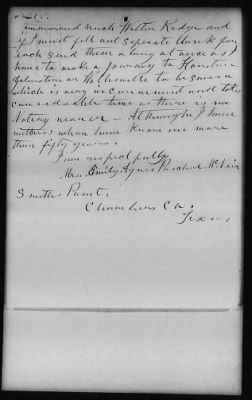 and
if I must fill out separate blank for
each send them along at once as I
have to make a journey to Houston
Galveston or Wallisville to be sworn
which is very inconvenient and takes
considerable time as there is no
Notary nearer — Although I have
witnesses whom have known me more
than fifty years.
I am respectfully
Mrs. Emily Agnes Paschal McNeir
Smiths Point,
Chambers Co.
Texas